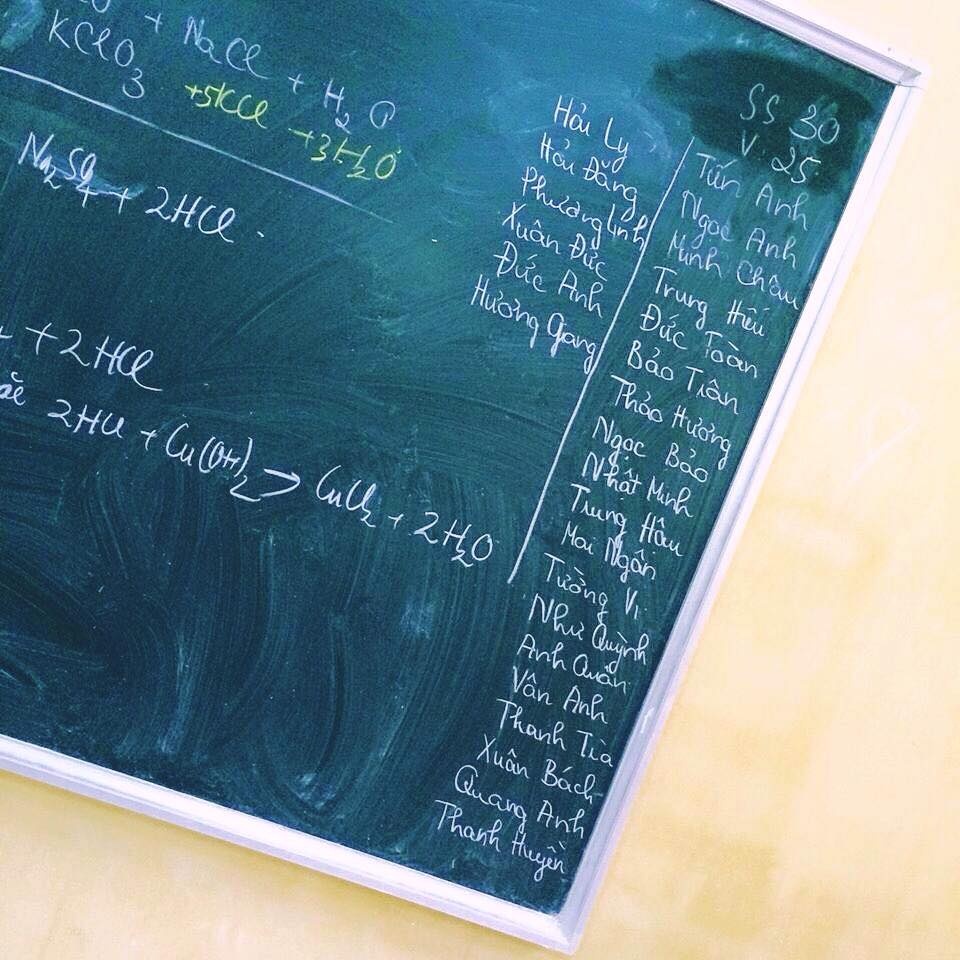 + NaCl + H₂O
KClO₃ +5KCl +3H₂O
Na₂SO₄ + 2HCl
+ 2HCl
2HCl + Cu(OH)₂ → CuCl₂ + 2H₂O
Hải Ly
Hải Đăng
Phương Linh
Xuân Đức
Đức Anh
Hương Giang
SS 30
V: 25
Tiến Anh
Ngọc Anh
Minh Châu
Trung Hiếu
Đức Toàn
Bảo Trân
Thảo Hương
Ngọc Bảo
Nhật Minh
Trung Hậu
Mai Ngân
Tường Vi
Như Quỳnh
Anh Quân
Vân Anh
Thanh Trà
Xuân Bách
Quang Anh
Thanh Huyền